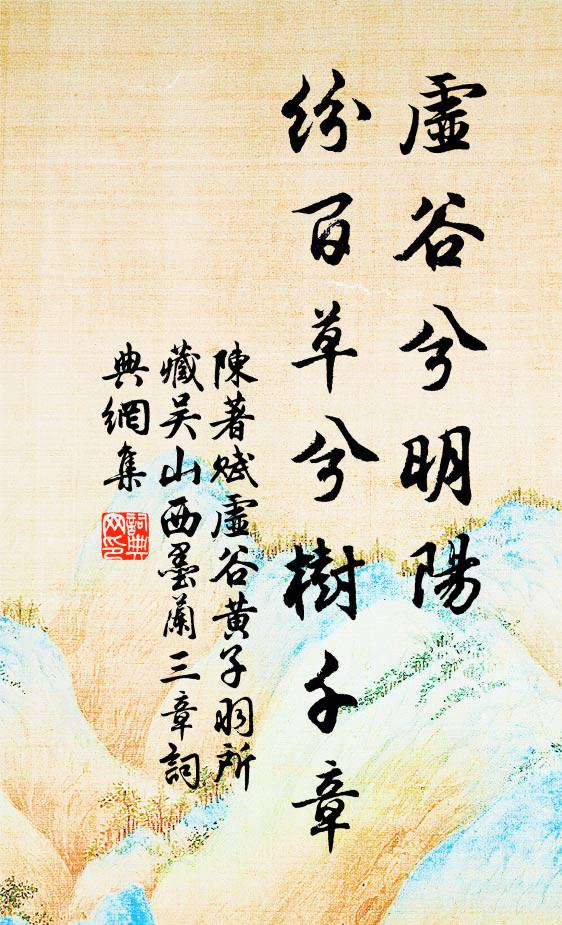 虛谷兮明陽
紛百草兮樹千章
陳著賦虛谷黃子羽所
藏吴山西墨蘭三章詞
典網集
詞典
网印